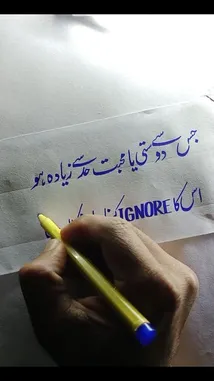 جس سے دوستی یا محبت حد سے زیادہ ہو
اس کا IGNORE کرنا